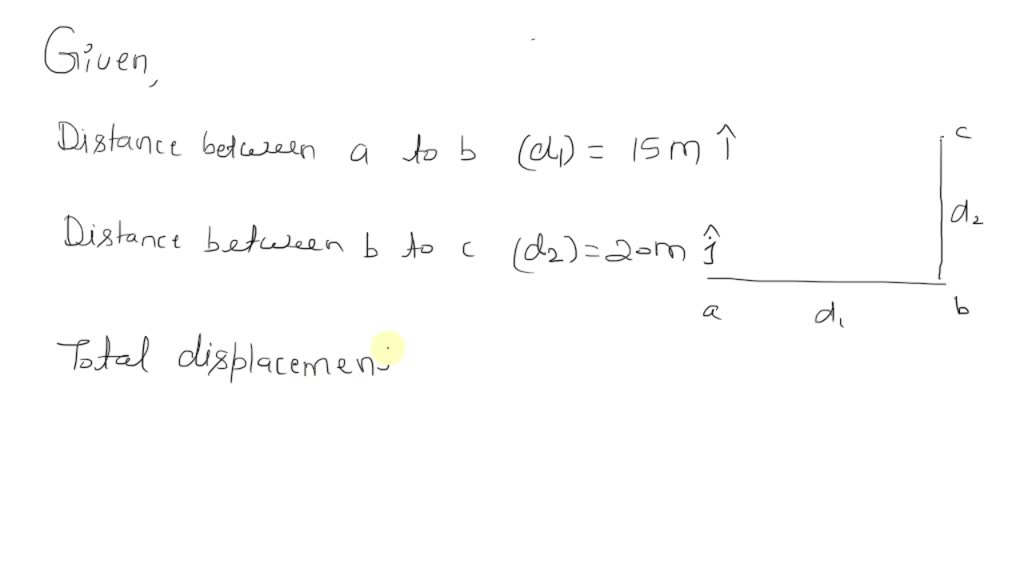 Given,
Distance between a to b (d₁) = 15m î
Distance between b to c (d₂) = 20m ĵ
Total displacemen
c
d₂
a d₁ b